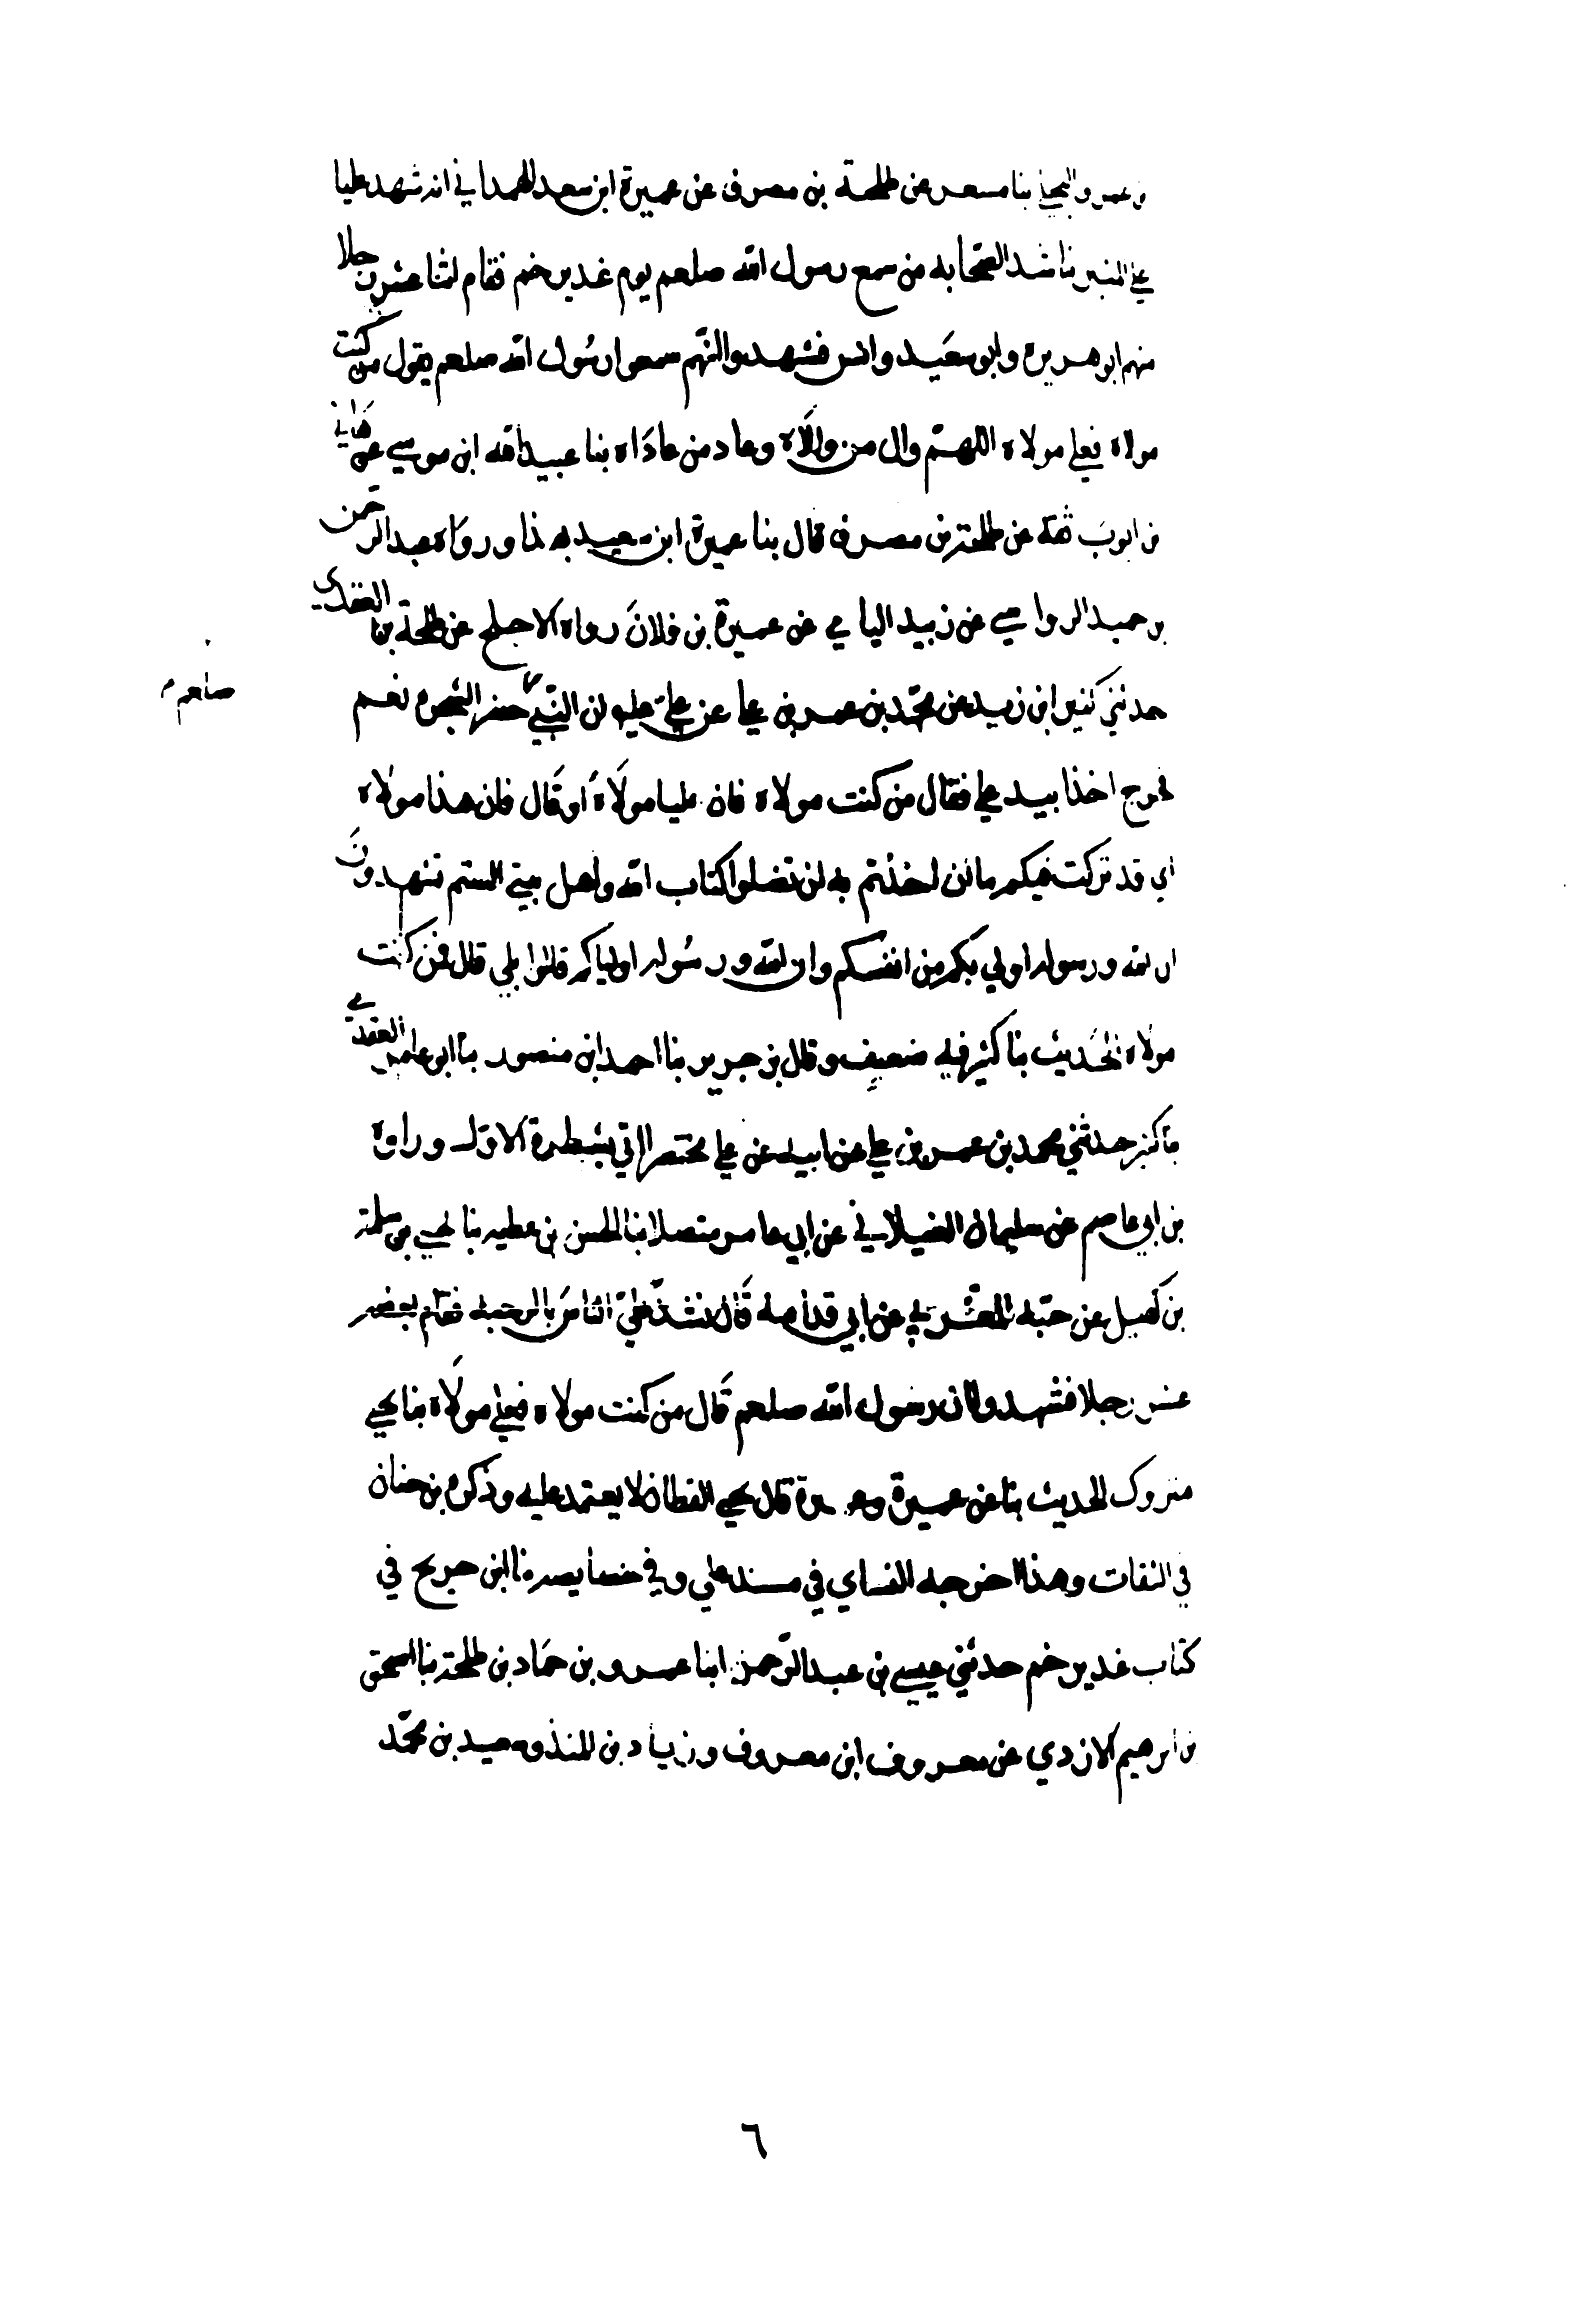 بن عمرو البجلي بنا مسعر عن طلحة بن مصرف عن عميرة ابن سعد الهمداني انه شهد عليا
علي المنبر يناشد الصحابه من سمع رسول الله صلعم يوم غدير خم فقام اثنا عشر رجلا
منهم ابو هريره وابو سعيد وانس فشهدوا انهم سمعوا رسول الله صلعم يقول من كنت
مولاه فعلي مولاه اللهم وال من والاه وعاد من عاداه بنا عبيد الله ابن موسي عن هاني
بن ايوب ثقة عن طلحة بن مصرف قال بنا عميرة ابن سعيد بهذا ورواه عبد الرحمن
بن حميد الرواسي عن زبيد اليامي عن عميرة بن فلان رواه الاجلح عن طلحة بنا العقدي
حدثني كثير ابن زيد عن محمد بن عمر بن علي عن علي عليه ان النبي حضر الشجره نعم
صلعم
فخرج اخذا بيد علي فقال من كنت مولاه فان عليا مولاه او قال فان هذا مولاه
اي قد تركت فيكم ما ان اخذتم به لن تضلوا كتاب الله واهل بيتي الستم تشهدون
ان الله ورسوله اولي بكم من انفسكم وان الله ورسوله اولياكم قالوا بلي قال فمن كنت
مولاه الحديث بنا كثير فيه ضعيف وقال بن جرير بنا احمد ابن منصور بنا ابو عامر العقدي
بنا كثير حدثني محمد بن عمر بن علي عن ابيه عن علي مختصرا اتي بشطره الاول ورواه
بن ابي عاصم عن سليمان الغيلاني عن ابي عامر متصلا بنا الحسن بن عطيه بنا يحيي بن سلمة
بن كهيل عن حبه العرني عن ابي قدامه قال نشد علي الناس بالرحبه فقام بضعه
عشر رجلا فشهدوا ان رسول الله صلعم قال من كنت مولاه فعلي مولاه بنا يحيي
متروك الحديث بنا عن عميرة قال يحيي القطان لا يعتمد عليه وذكره بن حبان
في الثقات وهذا اخرجه النساي في مسند علي وفي خصايصه بنا ابن جريح في
كتاب غدير خم حدثني عيسي بن عبد الرحمن ابنا عمرو بن حماد بن طلحة بنا اسحق
بن ابرهيم الازدي عن معروف ابن معروف وزياد بن المنذر وسعيد بن محمد
٦